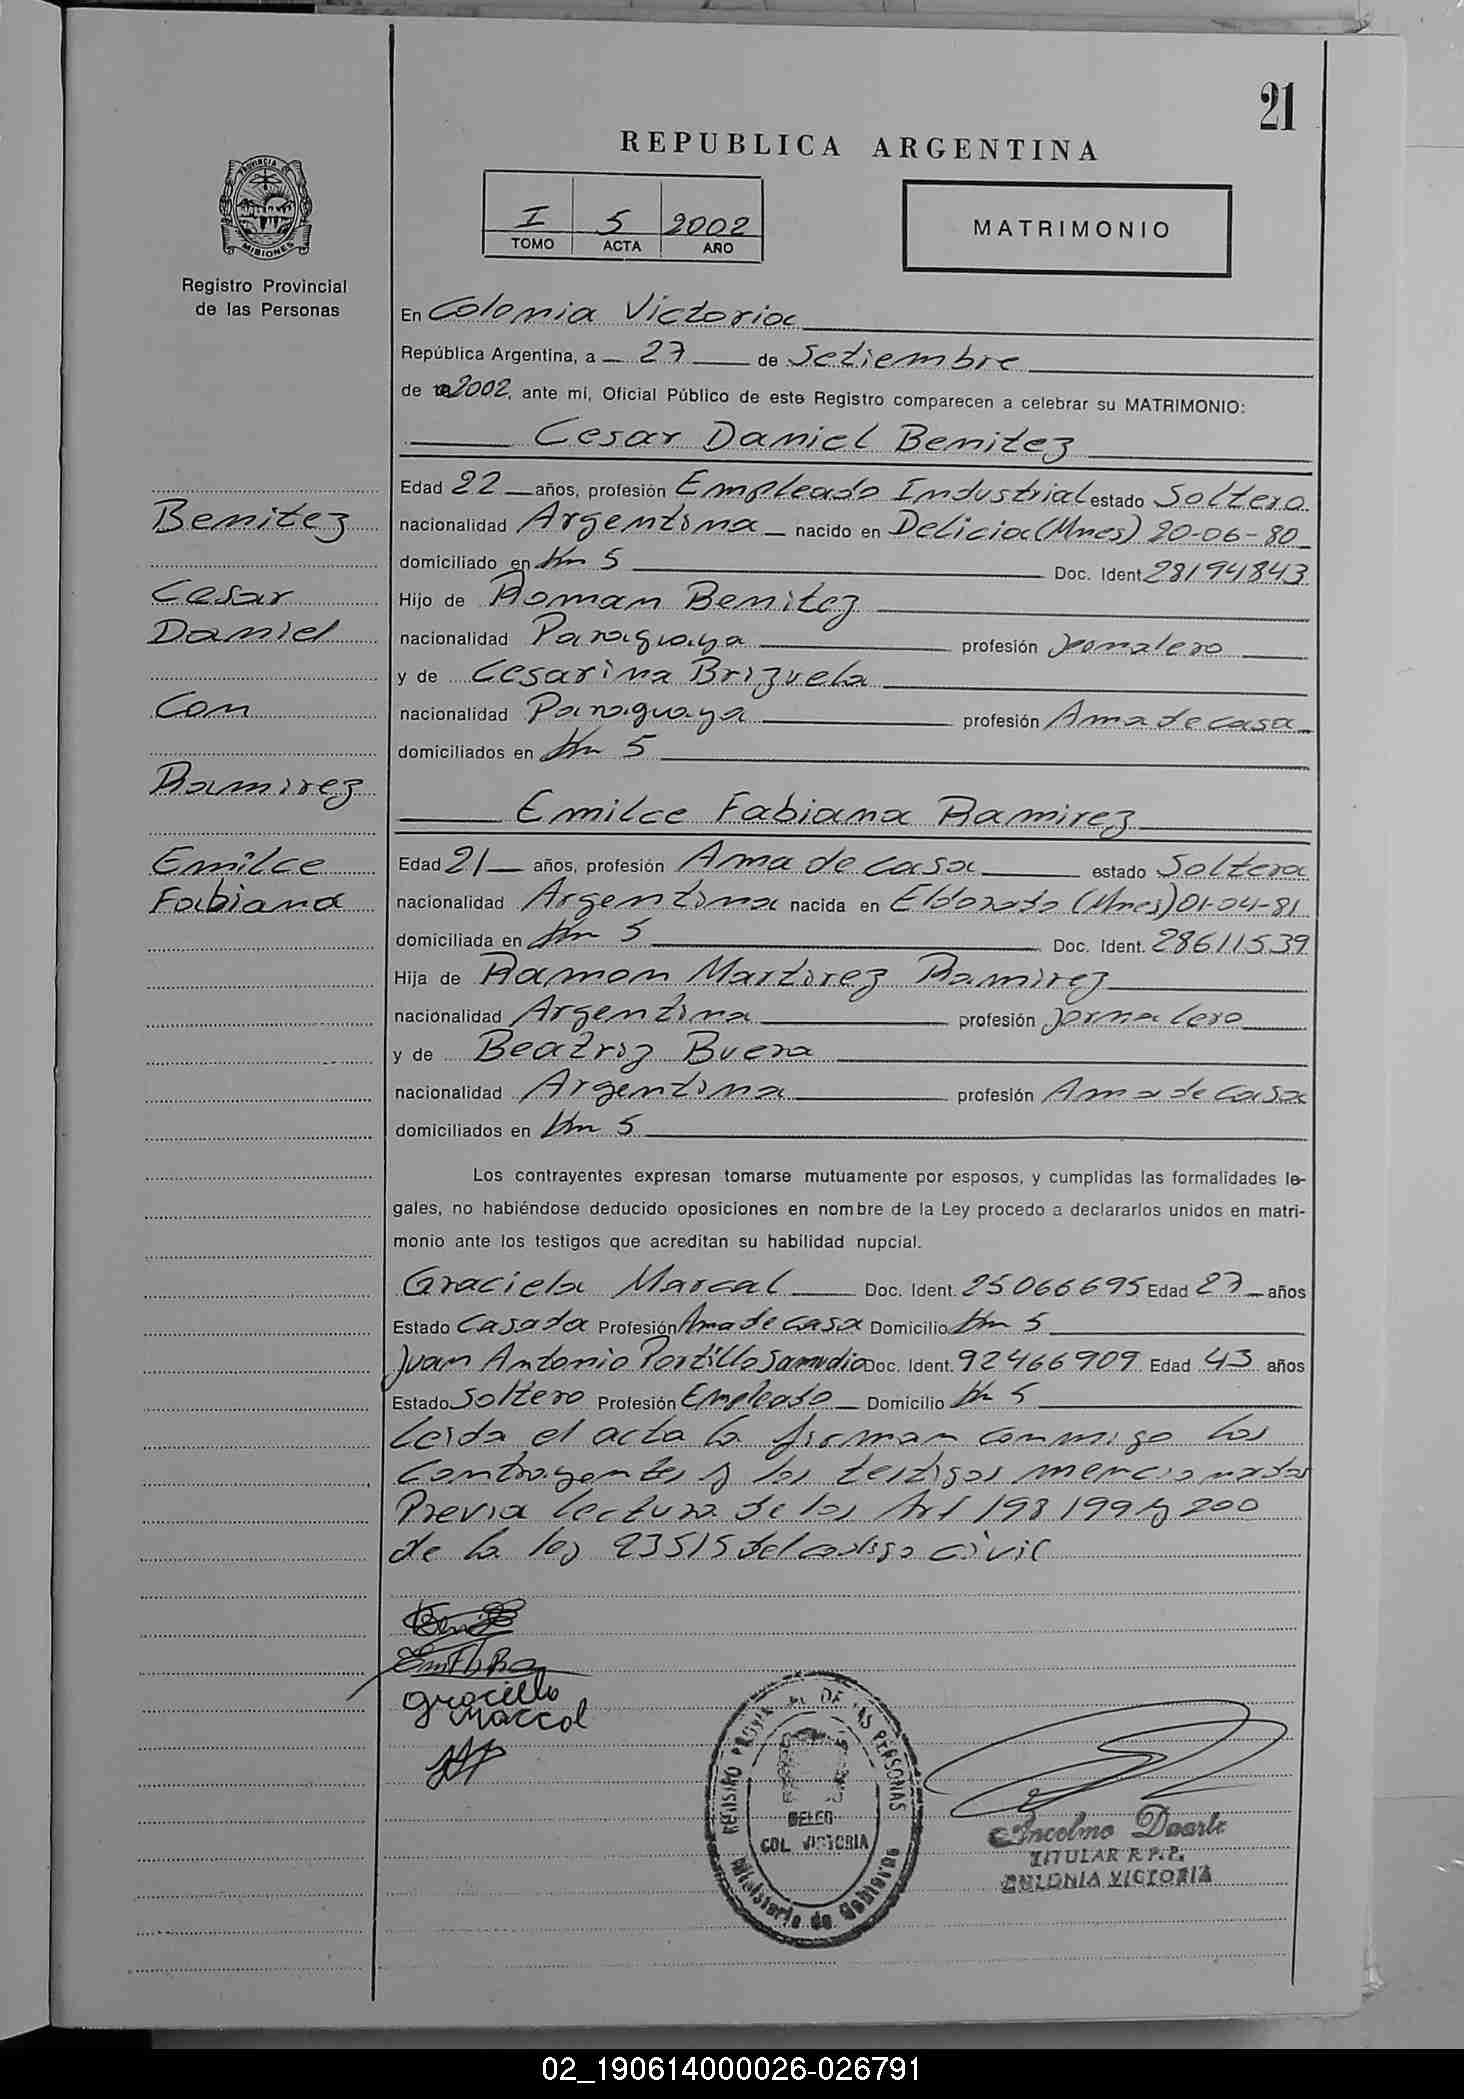 21
REPUBLICA ARGENTINA
PROVINCIA DE
MISIONES
Registro Provincial
de las Personas
I 5 2002
TOMO ACTA AÑO
MATRIMONIO
En Colonia Victoria
República Argentina, a 27 de Setiembre
de 2002, ante mí, Oficial Público de este Registro comparecen a celebrar su MATRIMONIO:
Cesar Daniel Benitez
Edad 22 años, profesión Empleado Industrial estado Soltero
nacionalidad Argentina nacido en Delicia (Mnes) 20-06-80
domiciliado en Km 5 Doc. Ident. 28194843
Hijo de Roman Benitez
nacionalidad Paraguaya profesión jornalero
y de Cesarina Brizuela
nacionalidad Paraguaya profesión Ama de casa
domiciliados en Km 5
Benitez
Cesar
Daniel
Con
Ramirez
Emilce
Fabiana
Emilce Fabiana Ramirez
Edad 21 años, profesión Ama de casa estado Soltera
nacionalidad Argentina nacida en Eldorado (Mnes) 01-04-81
domiciliada en Km 5 Doc. Ident. 28611539
Hija de Ramon Martirez Ramirez
nacionalidad Argentina profesión jornalero
y de Beatriz Buera
nacionalidad Argentina profesión Ama de casa
domiciliados en Km 5
Los contrayentes expresan tomarse mutuamente por esposos, y cumplidas las formalidades le-
gales, no habiéndose deducido oposiciones en nombre de la Ley procedo a declararlos unidos en matri-
monio ante los testigos que acreditan su habilidad nupcial.
Graciela Marcal Doc. Ident. 25066695 Edad 27 años
Estado Casada Profesión Ama de casa Domicilio Km 5
Juan Antonio Portillo Samudio Doc. Ident. 92466909 Edad 43 años
Estado Soltero Profesión Empleado Domicilio Km 5
Leida el acta la firman conmigo los
Contrayentes y los testigos mencionados
Previa lectura de los Art 198 199 y 200
de la ley 23515 del codigo civil
REGISTRO PROVINCIAL DE LAS PERSONAS
DELEG
COL. VICTORIA
Ministerio de Gobierno
Ancelmo Duarte
TITULAR R.P.P.
COLONIA VICTORIA
02_190614000026-026791